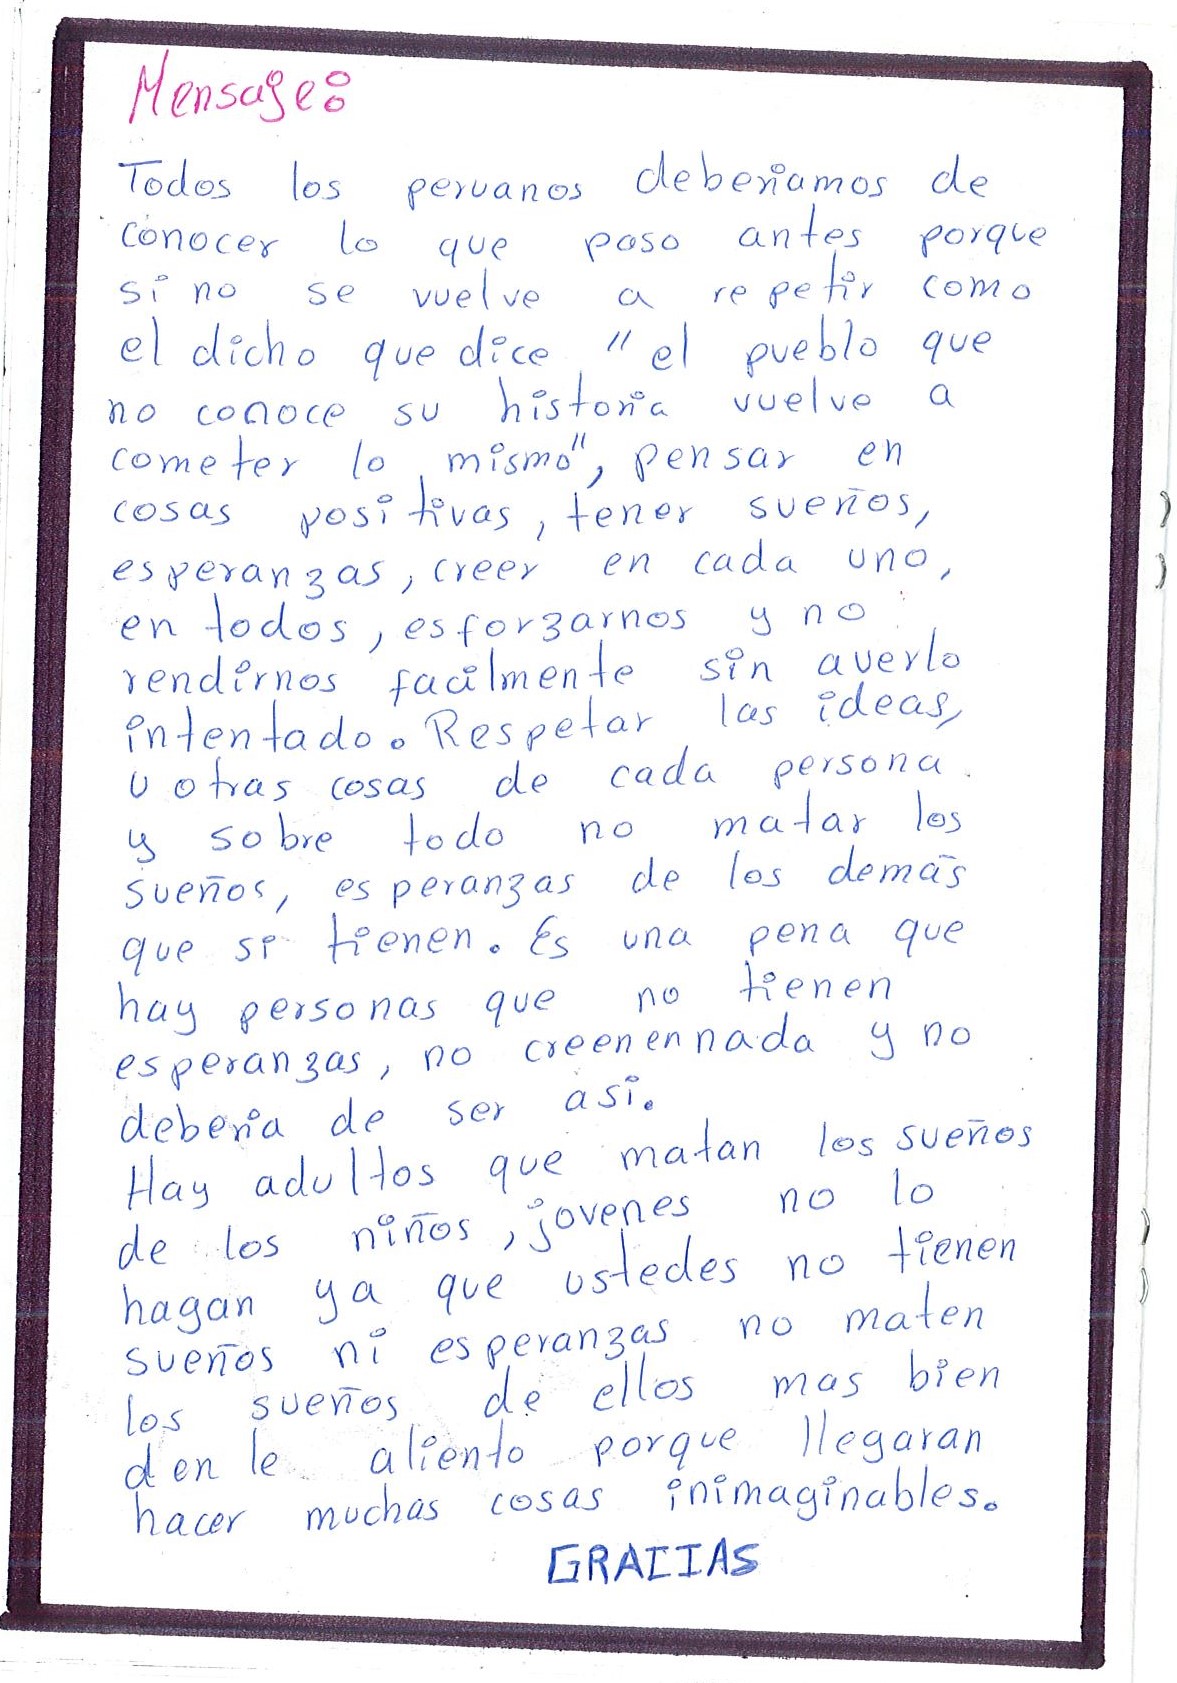 Mensaje:
Todos los peruanos deberiamos de
conocer lo que paso antes porque
si no se vuelve a repetir como
el dicho que dice "el pueblo que
no conoce su historia vuelve a
cometer lo mismo", pensar en
cosas positivas, tener sueños,
esperanzas, creer en cada uno,
en todos, esforzarnos y no
rendirnos facilmente sin averlo
intentado. Respetar las ideas,
u otras cosas de cada persona
y sobre todo no matar los
sueños, esperanzas de los demás
que si tienen. Es una pena que
hay personas que no tienen
esperanzas, no creen en nada y no
deberia de ser asi.
Hay adultos que matan los sueños
de los niños, jovenes no lo
hagan ya que ustedes no tienen
sueños ni esperanzas no maten
los sueños de ellos mas bien
denle aliento porque llegaran
hacer muchas cosas inimaginables.
GRACIAS